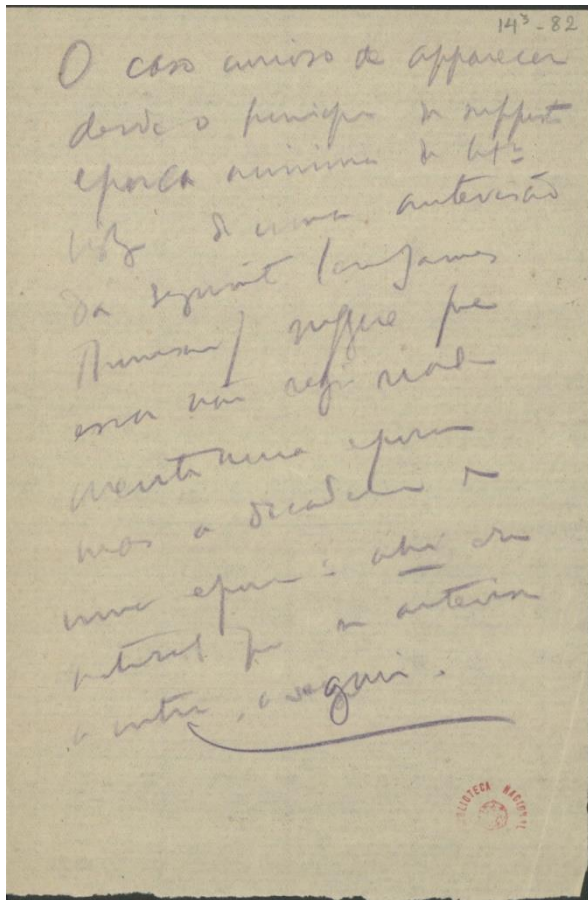 14³-82
O caso curioso de apparecer
desde o principio da supposta
epoca minima da litª
de uma antevisão
da seguinte
suggere que
essa não seja
mente uma epoca
mas a decadencia de
uma epoca: ahi era
natural que se antevisse
a outra, a seguir.
BIBLIOTECA NACIONAL